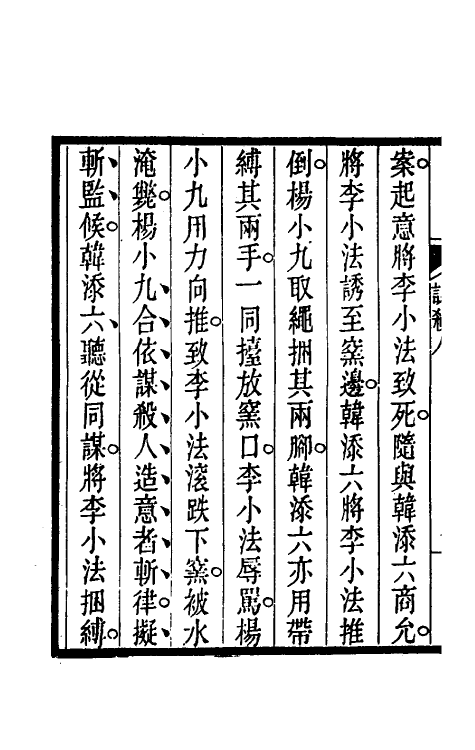 案起意將李小法致死隨與韓添六商允
將李小法誘至窯邊韓添六將李小法推
倒楊小九取繩捆其兩腳韓添六亦用帶
縛其兩手一同擡放窯口李小法辱罵楊
小九用力向推致李小法滚跌下窯被水
淹斃楊小九合依謀殺人造意者斬律擬
斬監候韓添六聽從同謀將李小法捆縛